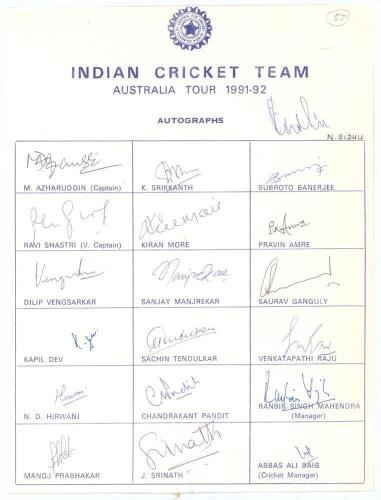 57
INDIAN CRICKET TEAM
AUSTRALIA TOUR 1991-92
AUTOGRAPHS
N. SIDHU
M. AZHARUDDIN (Captain) K. SRIKKANTH SUBROTO BANERJEE
RAVI SHASTRI (V. Captain) KIRAN MORE PRAVIN AMRE
Vengsarkar Manjrekar
DILIP VENGSARKAR SANJAY MANJREKAR SAURAV GANGULY
KAPIL DEV SACHIN TENDULKAR VENKATAPATHI RAJU
Hirwani C Pandit
N. D. HIRWANI CHANDRAKANT PANDIT RANBIR SINGH MAHENDRA
(Manager)
Srinath
MANOJ PRABHAKAR J. SRINATH ABBAS ALI BAIG
(Cricket Manager)